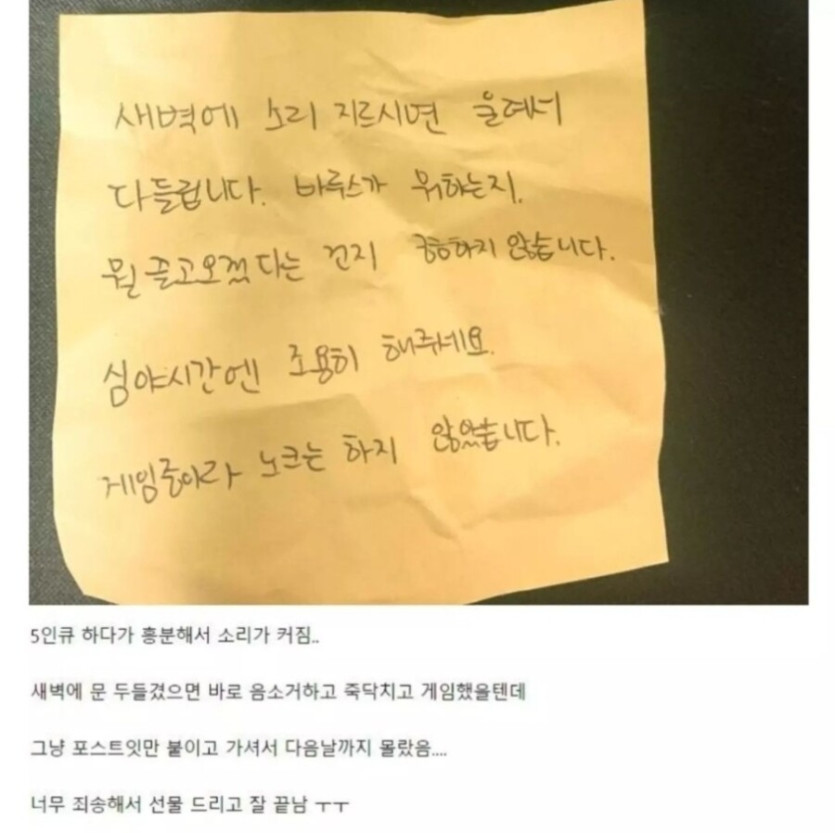 새벽에 소리 지르시면 울려서
다들립니다. 바루스가 뭐하는지.
뭘 들고오겠다는 건지 궁금하지 않습니다.
심야시간엔 조용히 해주세요.
게임중이라 노크는 하지 않았습니다.
5인큐 하다가 흥분해서 소리가 커짐..
새벽에 문 두들겼으면 바로 음소거하고 죽닥치고 게임했을텐데
그냥 포스트잇만 붙이고 가셔서 다음날까지 몰랐음....
너무 죄송해서 선물 드리고 잘 끝남 ㅜㅜ